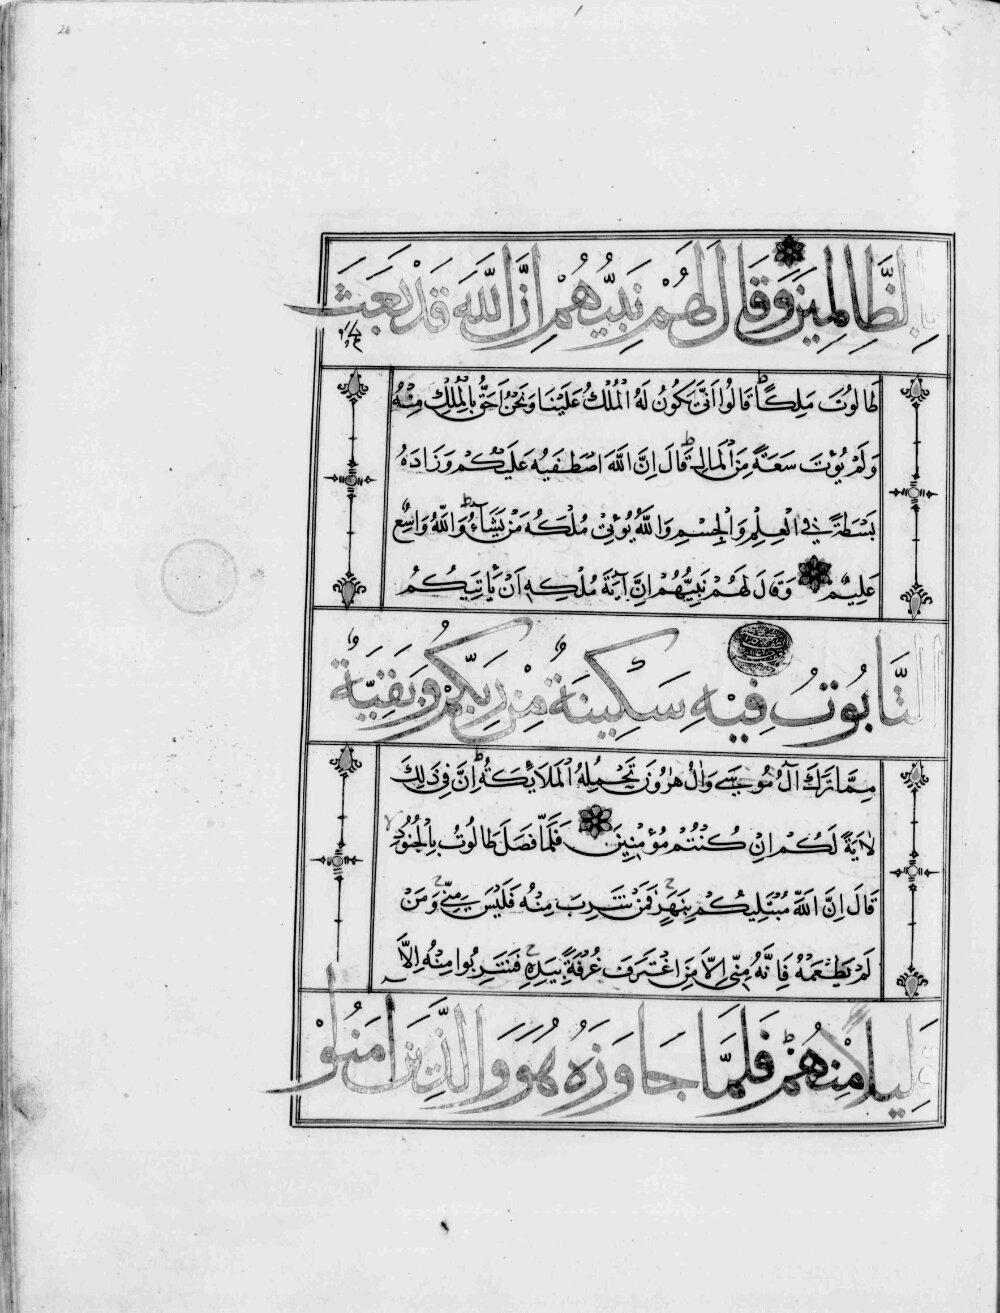 26
بِالظَّالِمِينَ وَقَالَ لَهُمْ نَبِيُّهُمْ إِنَّ اللَّهَ قَدْ بَعَثَ
طَالُوتَ مَلِكًا ط قَالُوا أَنَّى يَكُونُ لَهُ الْمُلْكُ عَلَيْنَا وَنَحْنُ أَحَقُّ بِالْمُلْكِ مِنْهُ
وَلَمْ يُؤْتَ سَعَةً مِنَ الْمَالِ ط قَالَ إِنَّ اللَّهَ اصْطَفَيٰهُ عَلَيْكُمْ وَزَادَهُ
بَسْطَةً فِي الْعِلْمِ وَالْجِسْمِ وَاللَّهُ يُؤْتِي مُلْكَهُ مَنْ يَشَاءُ ط وَاللَّهُ وَاسِعٌ
عَلِيمٌ وَقَالَ لَهُمْ نَبِيُّهُمْ إِنَّ آيَةَ مُلْكِهِ أَنْ يَأْتِيَكُمُ
التَّابُوتُ فِيهِ سَكِينَةٌ مِنْ رَبِّكُمْ وَبَقِيَّةٌ
مِمَّا تَرَكَ آلُ مُوسَى وَآلُ هٰرُونَ تَحْمِلُهُ الْمَلَائِكَةُ ط إِنَّ فِي ذٰلِكَ
لَآيَةً لَكُمْ إِنْ كُنْتُمْ مُؤْمِنِينَ فَلَمَّا فَصَلَ طَالُوتُ بِالْجُنُودِ
قَالَ إِنَّ اللَّهَ مُبْتَلِيكُمْ بِنَهَرٍ ج فَمَنْ شَرِبَ مِنْهُ فَلَيْسَ مِنِّي ج وَمَنْ
لَمْ يَطْعَمْهُ فَإِنَّهُ مِنِّي إِلَّا مَنِ اغْتَرَفَ غُرْفَةً بِيَدِهِ ج فَشَرِبُوا مِنْهُ إِلَّا
قَلِيلًا مِنْهُمْ ط فَلَمَّا جَاوَزَهُ هُوَ وَالَّذِينَ آمَنُوا